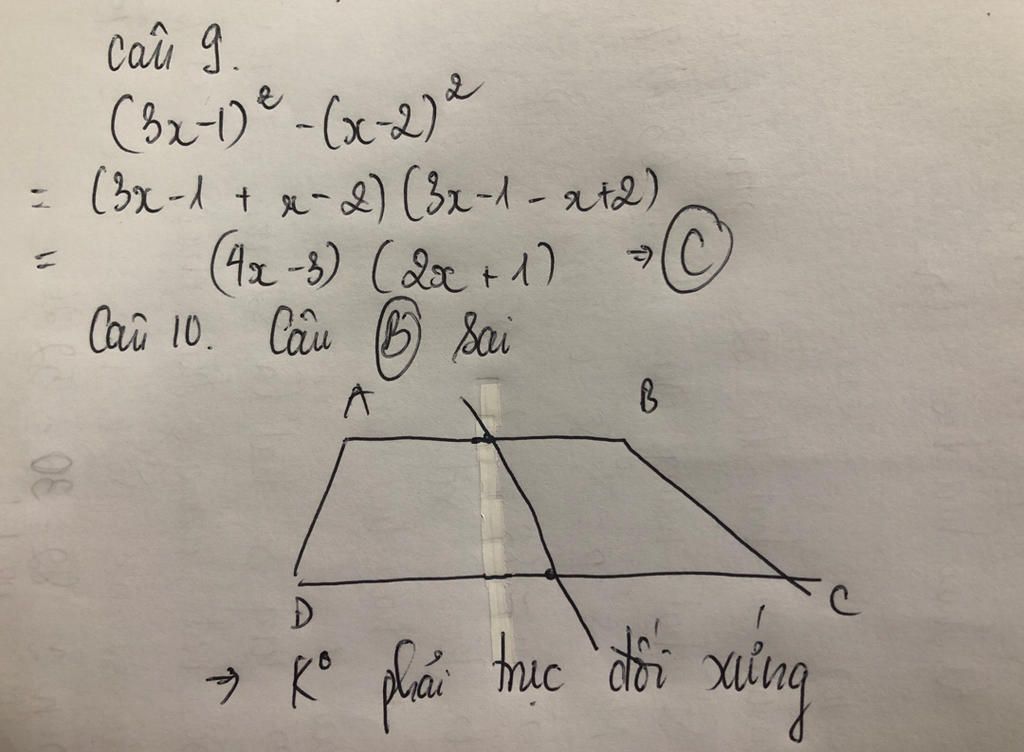 Câu 9.
(3x-1)² - (x-2)²
= (3x-1 + x-2) (3x-1 - x+2)
= (4x-3) (2x+1) → C
Câu 10. Câu B sai
A B
D C
→ K° phải trục đối xứng